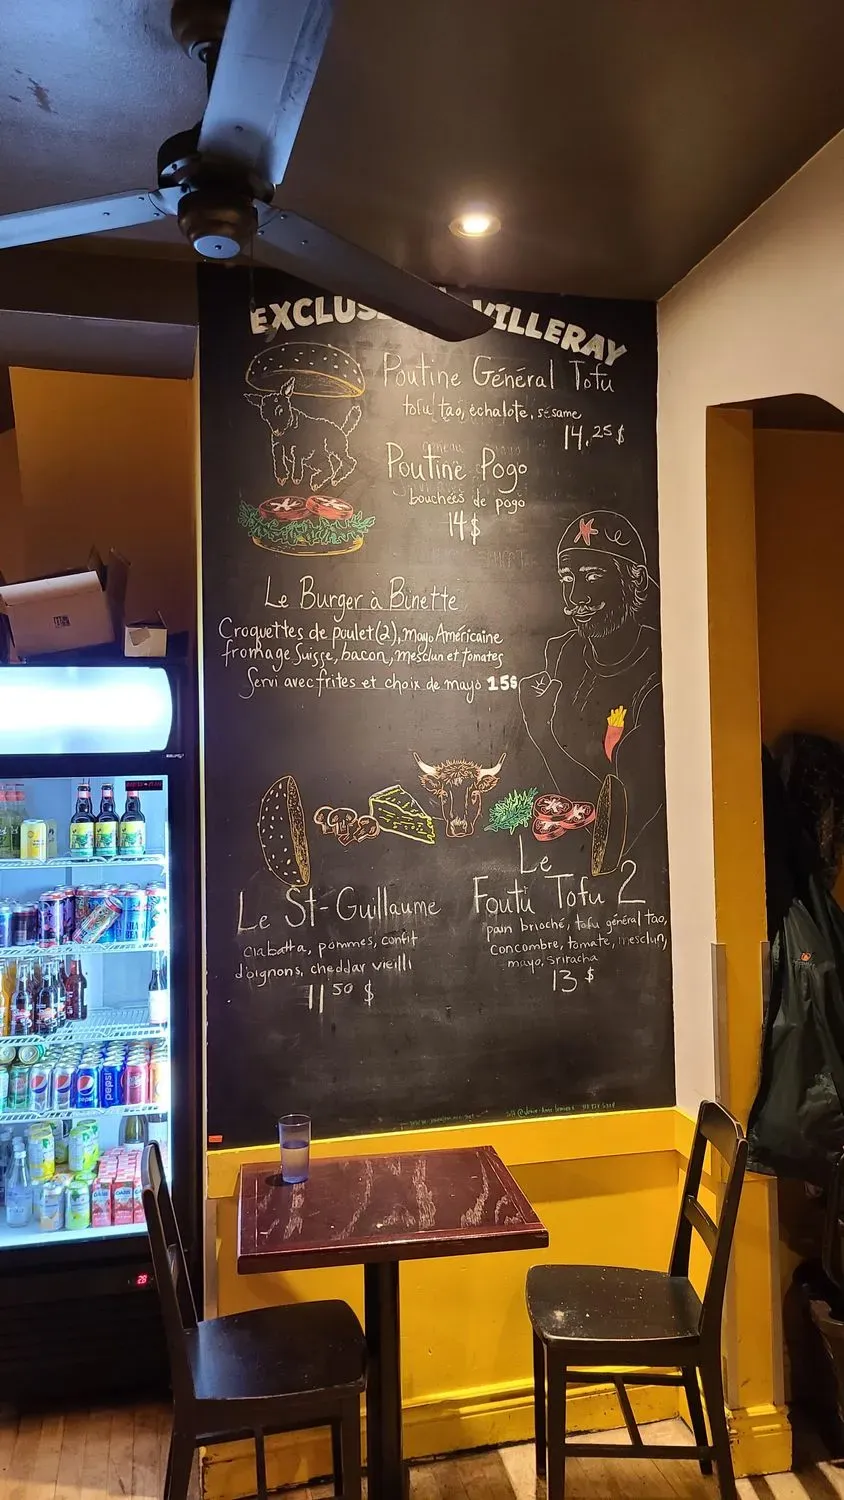 VILLERAY
Poutine Général Tofu
tofu tao, échalote, sésame
14.25$
Poutine Pogo
bouchées de pogo
14$
Le Burger à Binette
Croquettes de poulet(2), Mayo Américaine
fromage Suisse, bacon, mesclun et tomates
Servi avec frites et choix de mayo 15$
Le St-Guillaume
ciabatta, pommes, confit
d'oignons, cheddar vieilli
11 50 $
Le
Foutu Tofu 2
pain brioché, tofu général tao,
concombre, tomate, mesclun,
mayo, sriracha
13 $
pepsi